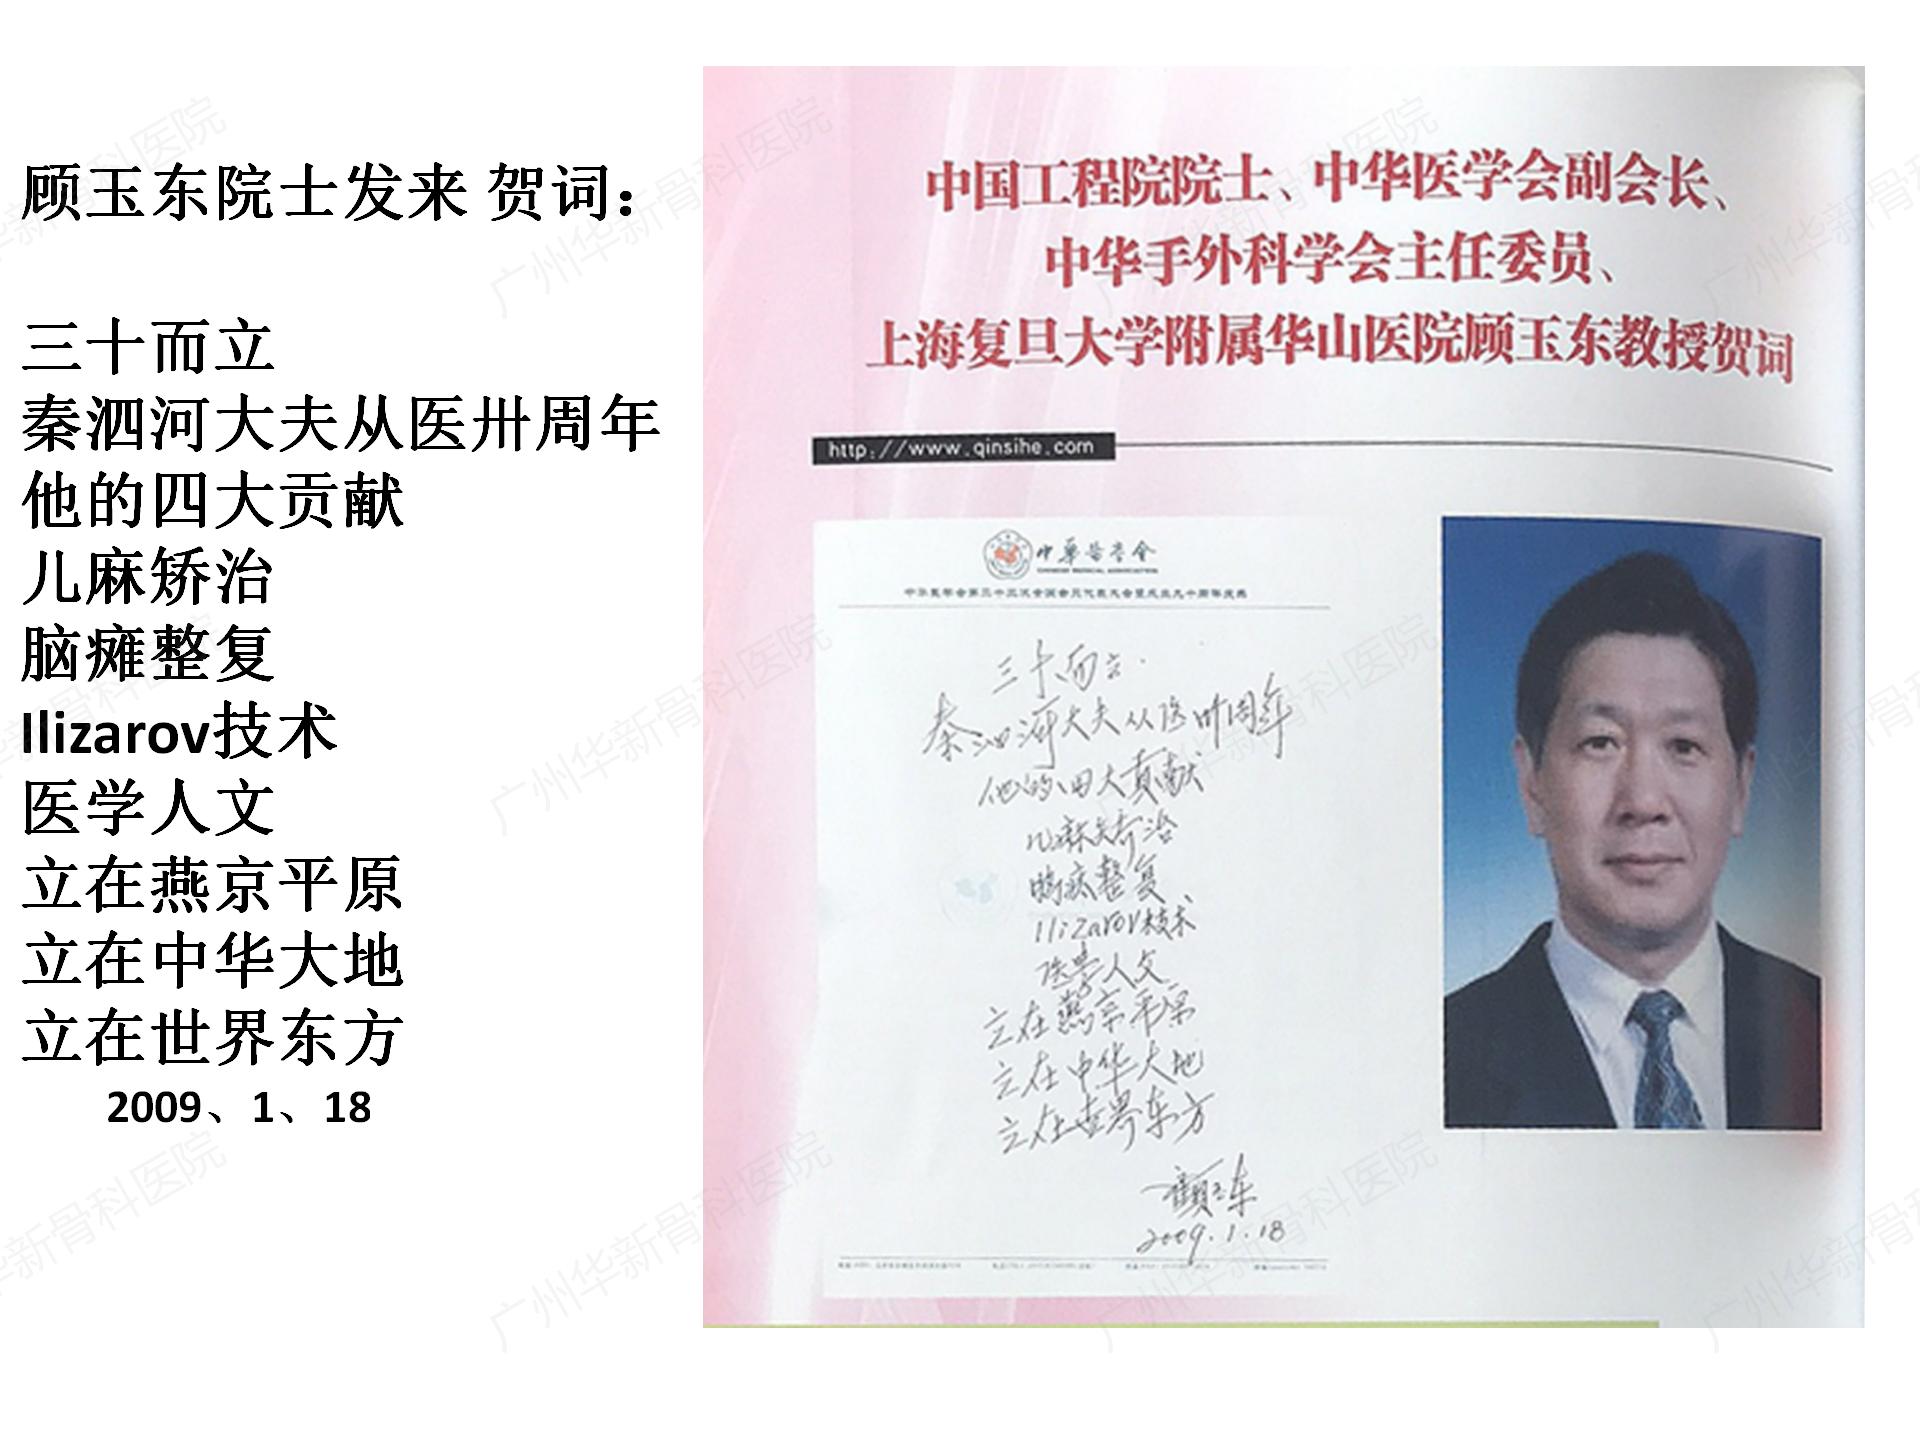 顾玉东院士发来 贺词：
三十而立
秦泗河大夫从医卅周年
他的四大贡献
儿麻矫治
脑瘫整复
Ilizarov技术
医学人文
立在燕京平原
立在中华大地
立在世界东方
2009、1、18
中国工程院院士、中华医学会副会长、
中华手外科学会主任委员、
上海复旦大学附属华山医院顾玉东教授贺词
http://www.qinsihe.com
中华医学会
CHINESE MEDICAL ASSOCIATION
中华医学会第二十三次全国会员代表大会暨成立九十周年庆典
三十而立.
秦泗河大夫从医卅周年
他的四大贡献
儿麻矫治
脑瘫整复
Ilizarov技术
医学人文
立在燕京平原
立在中华大地
立在世界东方
顾玉东
2009.1.18
广州华新骨科医院